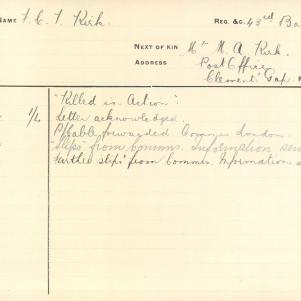 NAME F. C. T. Kirk. REG. &c. 43rd Ba
NEXT OF KIN Mr M. A. Kirk.
ADDRESS Post Office
Clement' Gap.
"Killed in Action".
1/4 Letter acknowledged.
forwarded Commrs London.
"Slips" from Commrs. Information sen
Further slips from Commrs. Information s